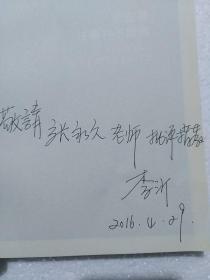 敬請张永久老师批评指教
李沂
2016.4.29.